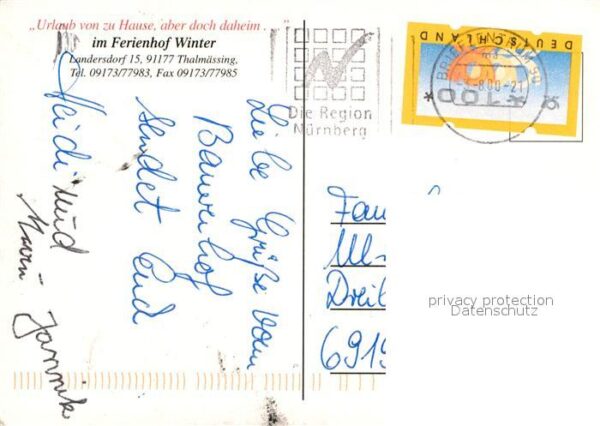 „Urlaub von zu Hause, aber doch daheim . . .“
im Ferienhof Winter
Landersdorf 15, 91177 Thalmässing.
Tel. 09173/77983, Fax 09173/77985
Die Region
Nürnberg
DEUTSCHLAND
BRIEFZENTRUM 90
8.00-21
*100*
Liebe Grüße vom
Bauernhof
sendet Euch
Heidi und
Jannik
Fam
Ul
Dreik
6919
privacy protection
Datenschutz